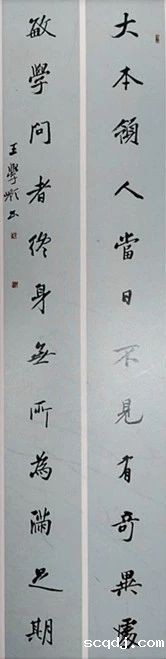 大本領人當日不見有奇異處
敏學問者終身無所為滿足期
王學嶺書
scqd4.com